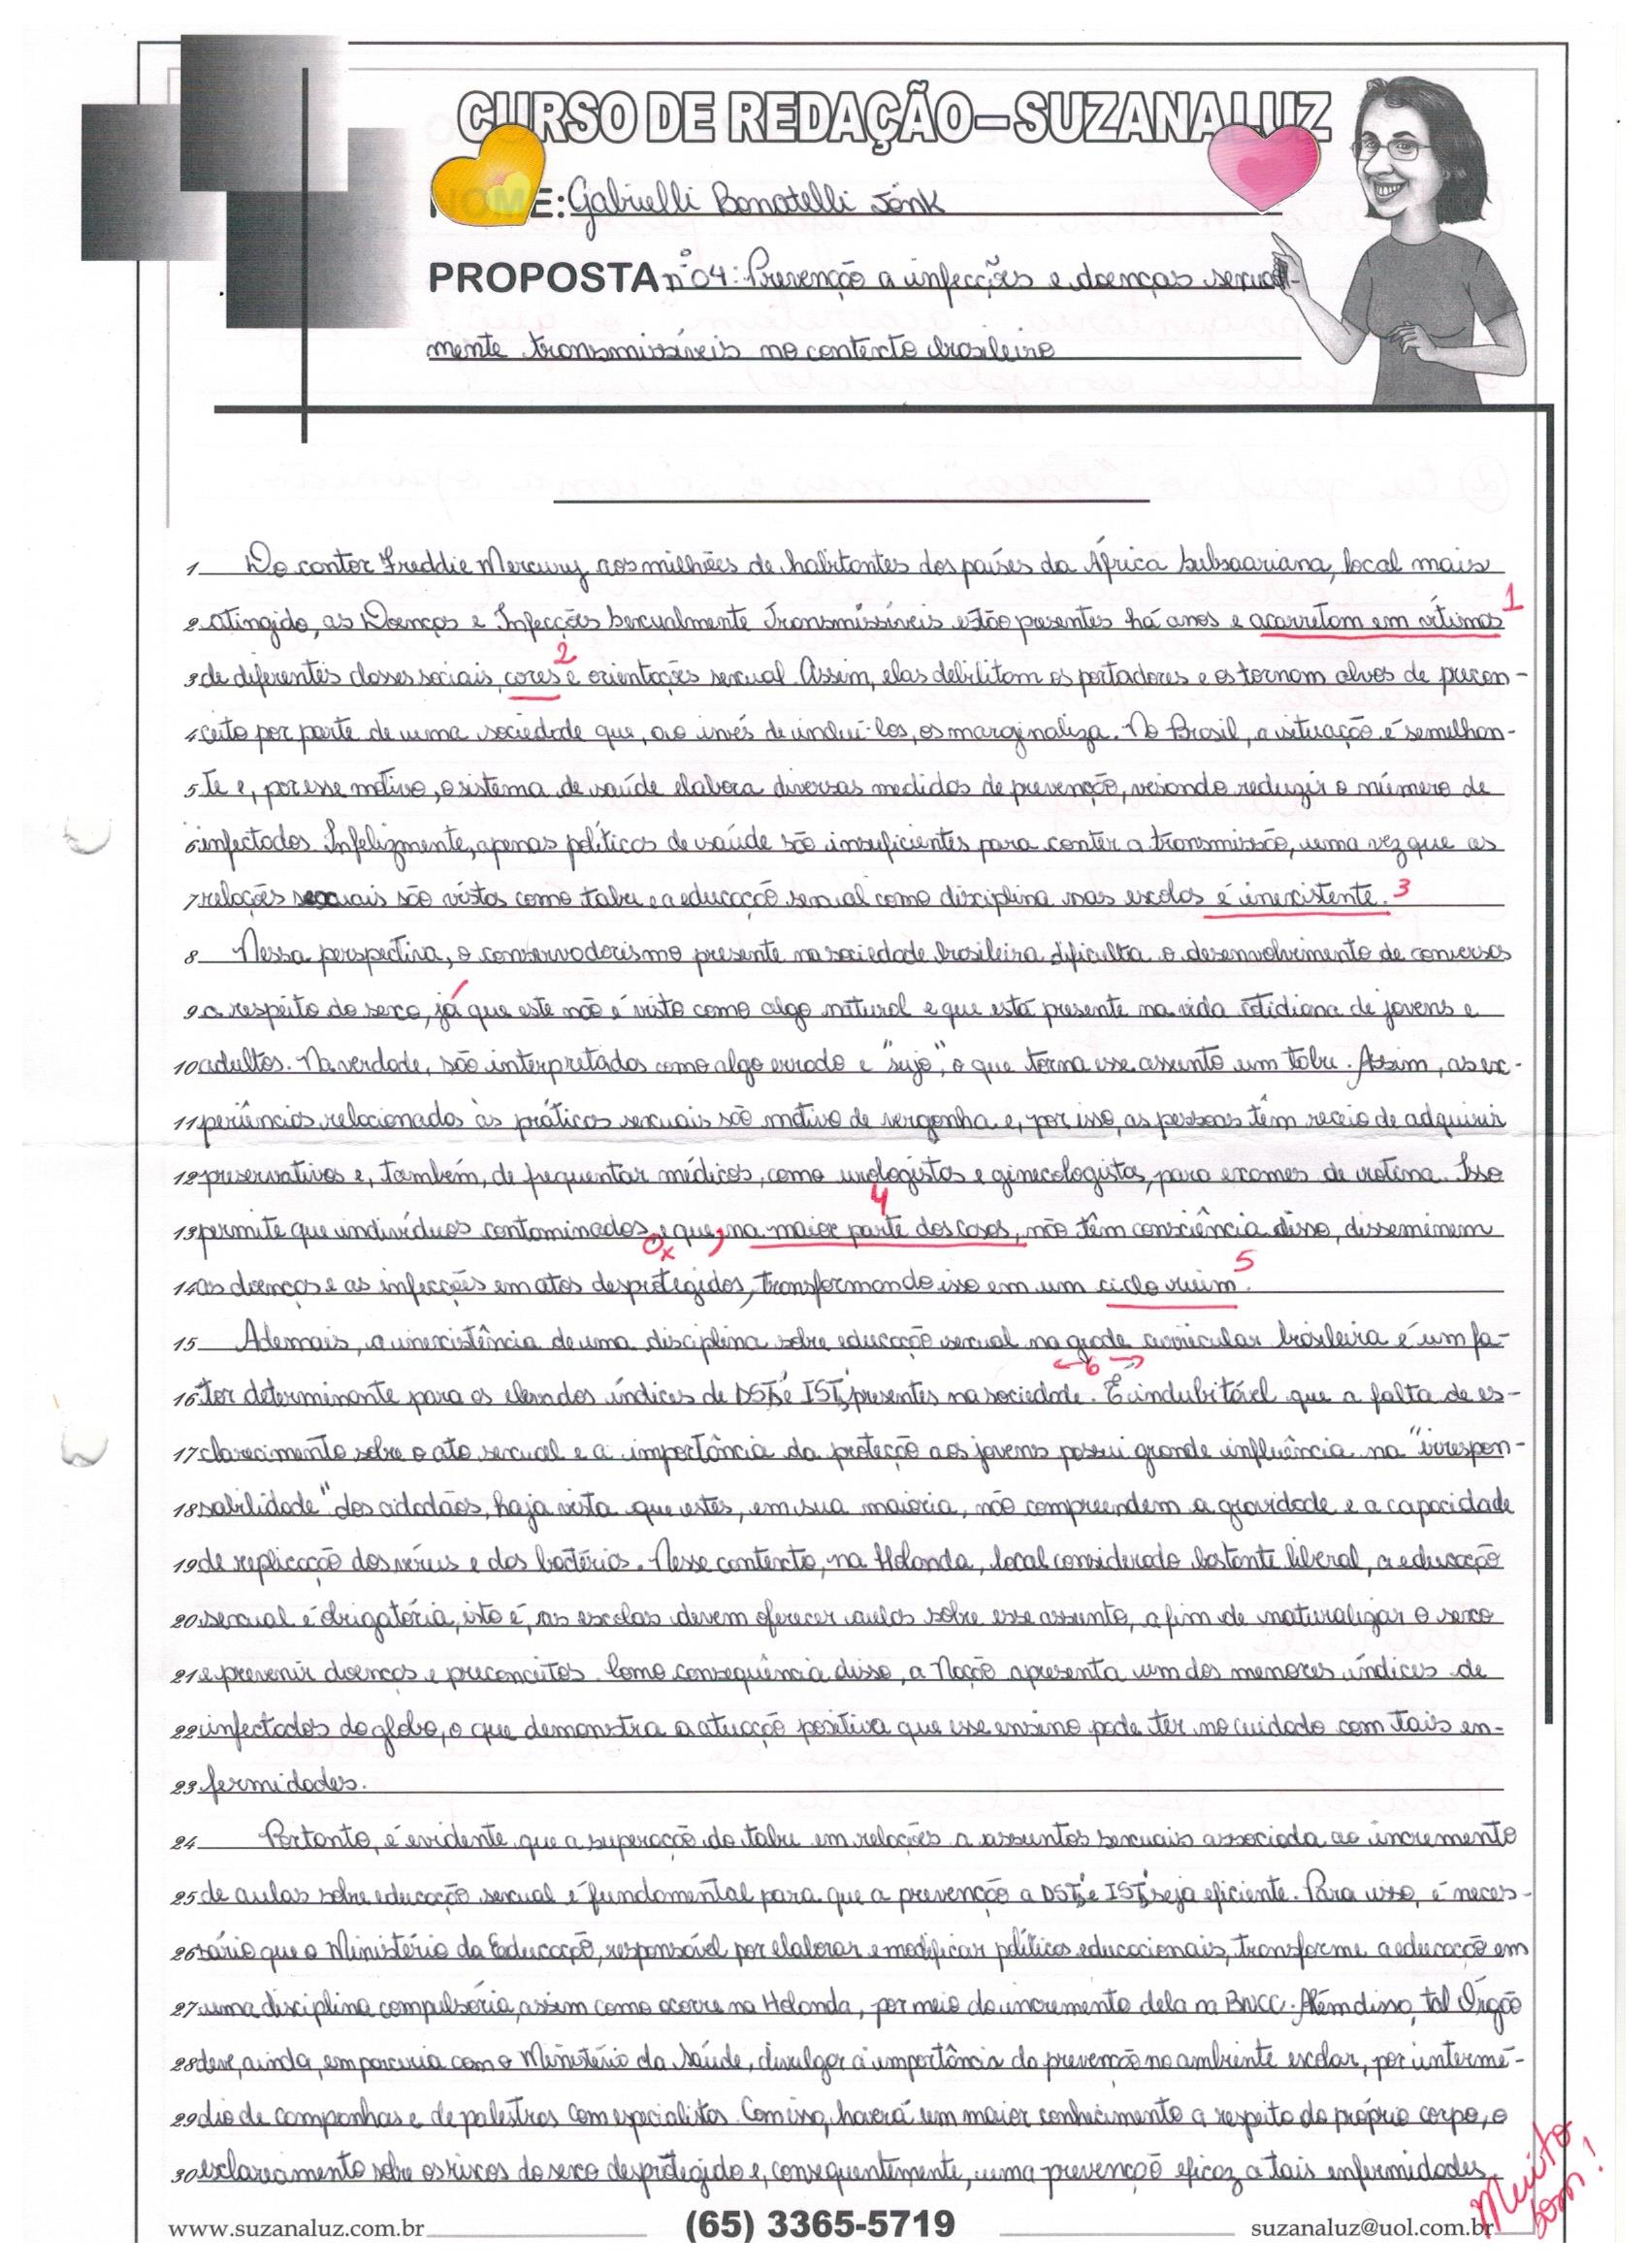 CURSO DE REDAÇÃO-SUZANALUZ
NOME: Gabrielli Bonatelli Jönk
PROPOSTA nº 04: Prevenção a infecções e doenças sexual-
mente transmissíveis no contexto brasileiro
1 Do cantor Freddie Mercury aos milhões de habitantes dos países da África Subsaariana, local mais
2 atingido, as Doenças e Infecções Sexualmente Transmissíveis estão presentes há anos e acarretam em vítimas 1
3 de diferentes classes sociais, cores 2 e orientações sexual. Assim, elas debilitam os portadores e os tornam alvos de precon-
4 ceito por parte de uma sociedade que, ao invés de incluí-los, os marginaliza. No Brasil, a situação é semelhan-
5 te e, por esse motivo, o sistema de saúde elabora diversas medidas de prevenção, visando reduzir o número de
6 infectados. Infelizmente, apenas políticas de saúde são insuficientes para conter a transmissão, uma vez que as
7 relações sexuais são vistas como tabu e a educação sexual como disciplina nas escolas é inexistente. 3
8 Nessa perspectiva, o conservadorismo presente na sociedade brasileira dificulta o desenvolvimento de conversas
9 a respeito do sexo, já que este não é visto como algo natural e que está presente na vida cotidiana de jovens e
10 adultos. Na verdade, são interpretados como algo errado e "sujo", o que torna esse assunto um tabu. Assim, as ex-
11 periências relacionadas às práticas sexuais são motivo de vergonha e, por isso, as pessoas têm receio de adquirir
12 preservativos e, também, de frequentar médicos, como urologistas e ginecologistas, para exames de rotina. Isso
13 permite que indivíduos contaminados e que, na maior parte dos casos, 4 não têm consciência disso, disseminem
14 as doenças e as infecções em atos desprotegidos, transformando isso em um ciclo ruim. 5
15 Ademais, a inexistência de uma disciplina sobre educação sexual na grade 6 curricular brasileira é um fa-
16 tor determinante para os elevados índices de DSTs e ISTs presentes na sociedade. É indubitável que a falta de es-
17 clarecimento sobre o ato sexual e a importância da proteção aos jovens possui grande influência na "irrespon-
18 sabilidade" dos cidadãos, haja vista que estes, em sua maioria, não compreendem a gravidade e a capacidade
19 de replicação dos vírus e das bactérias. Nesse contexto, na Holanda, local considerado bastante liberal, a educação
20 sexual é obrigatória, isto é, as escolas devem oferecer aulas sobre esse assunto, a fim de naturalizar o sexo
21 e prevenir doenças e preconceitos. Como consequência disso, a Nação apresenta um dos menores índices de
22 infectados do globo, o que demonstra a atuação positiva que esse ensino pode ter no cuidado com tais en-
23 fermidades.
24 Portanto, é evidente que a superação do tabu em relações a assuntos sexuais associada ao incremento
25 de aulas sobre educação sexual é fundamental para que a prevenção a DSTs e ISTs seja eficiente. Para isso, é neces-
26 sário que o Ministério da Educação, responsável por elaborar e modificar políticas educacionais, transforme a educação em
27 uma disciplina compulsória, assim como ocorre na Holanda, por meio do incremento dela na BNCC. Além disso, tal Órgão
28 deve, ainda, em parceria com o Ministério da Saúde, divulgar a importância da prevenção no ambiente escolar, por intermé-
29 dio de campanhas e de palestras com especialistas. Com isso, haverá um maior conhecimento a respeito do próprio corpo, o
30 esclarecimento sobre os riscos do sexo desprotegido e, consequentemente, uma prevenção eficaz a tais enfermidades.
Muito bom!
www.suzanaluz.com.br (65) 3365-5719 suzanaluz@uol.com.br